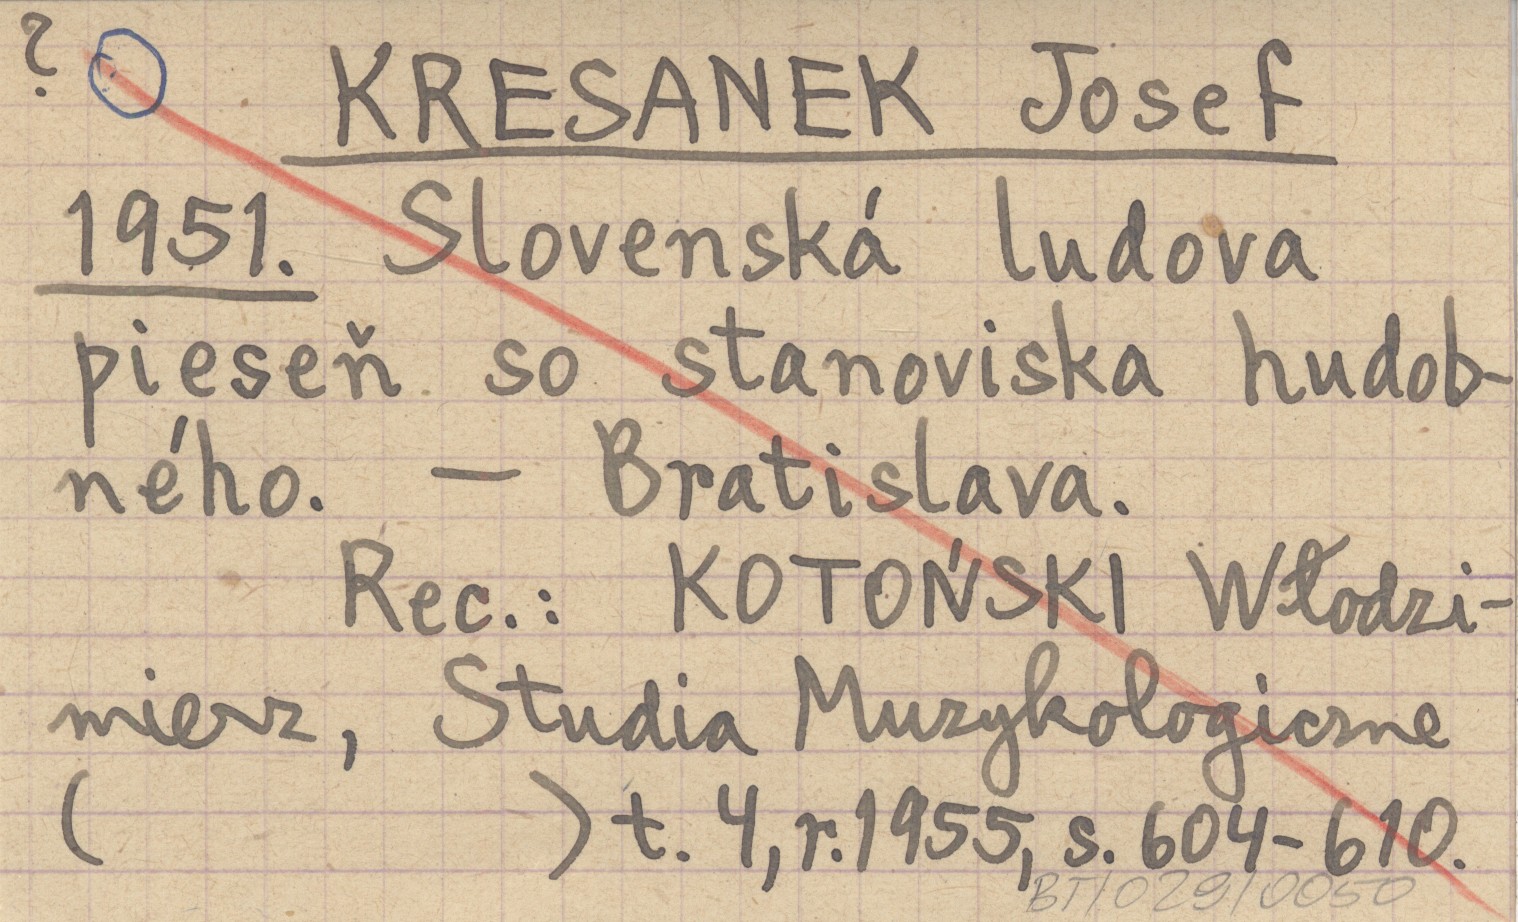 ? KRESANEK Josef
1951. Slovenská ludova
pieseň so stanoviska hudob-
ného. — Bratislava.
Rec.: KOTOŃSKI Włodzi-
mierz, Studia Muzykologiczne
( ) t. 4, r. 1955, s. 604-610.
BT/029/0050